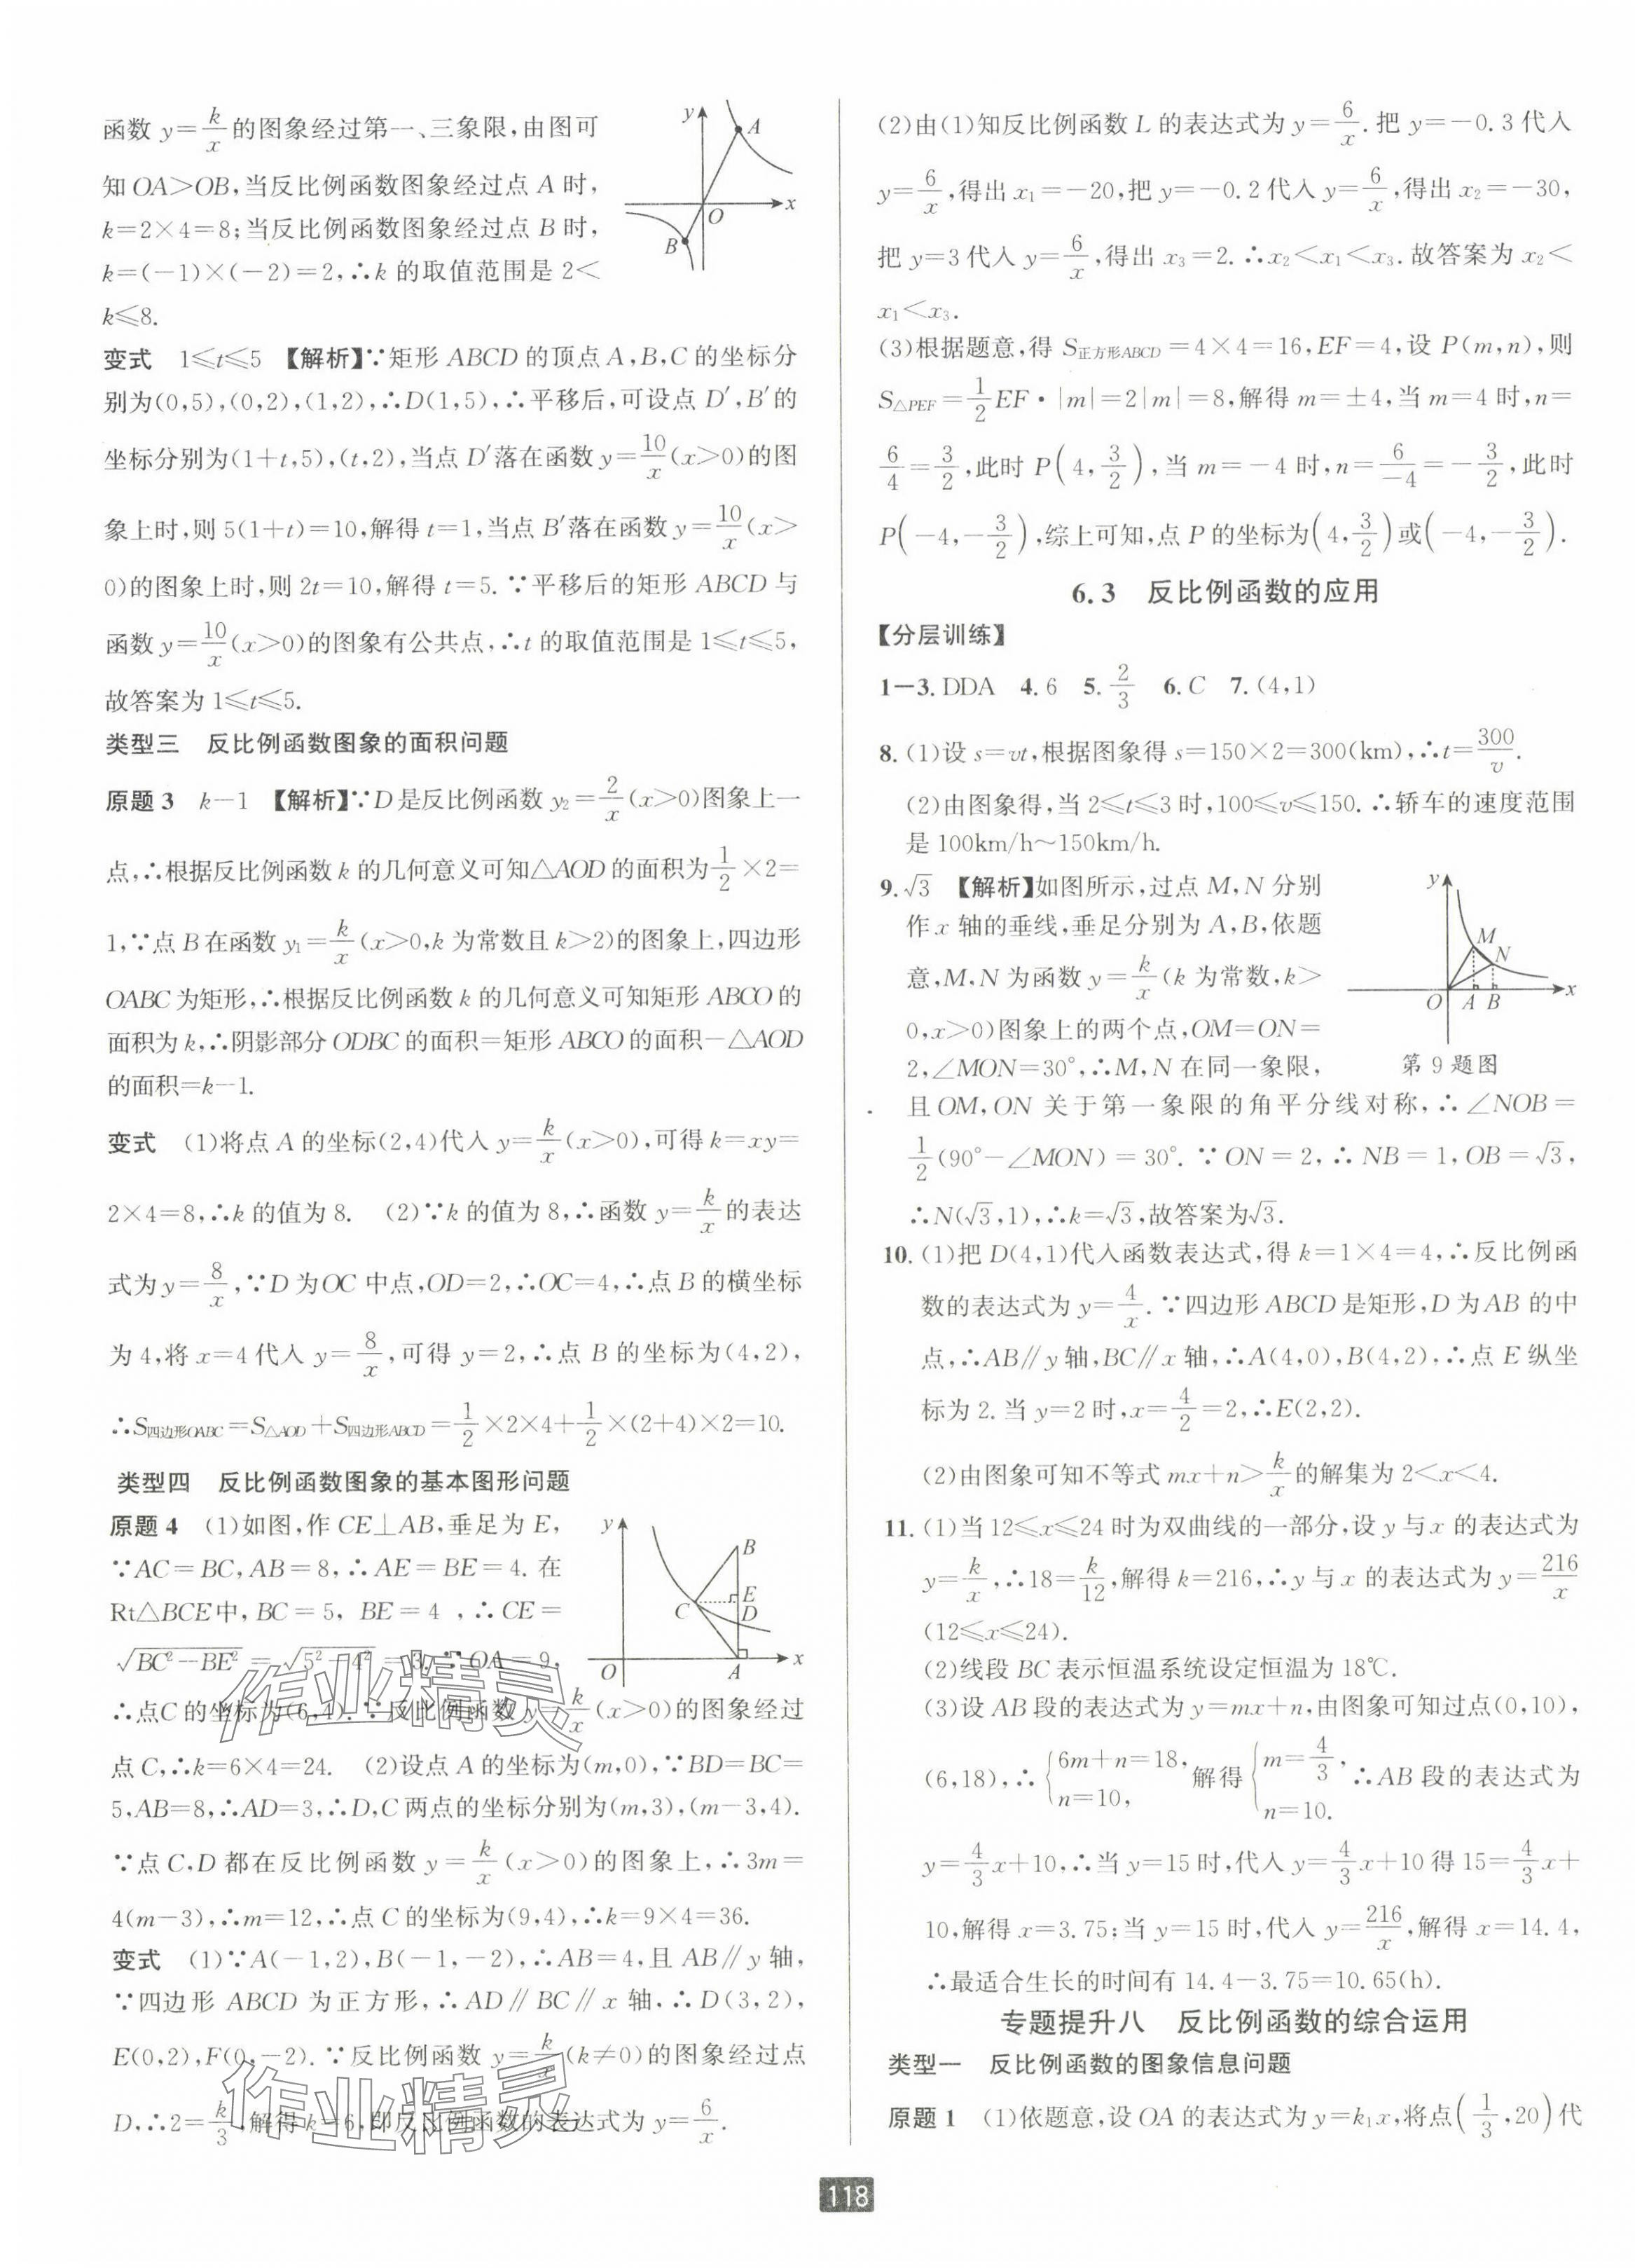 函数 y=k/x 的图象经过第一、三象限,由图可
知 OA>OB,当反比例函数图象经过点 A 时,
k=2×4=8;当反比例函数图象经过点 B 时,
k=(-1)×(-2)=2,∴k 的取值范围是 2<
k≤8.
y A
O x
B
变式 1≤t≤5 【解析】∵矩形 ABCD 的顶点 A,B,C 的坐标分
别为(0,5),(0,2),(1,2),∴D(1,5),∴平移后,可设点 D′,B′的
坐标分别为(1+t,5),(t,2),当点 D′落在函数 y=10/x(x>0)的图
象上时,则 5(1+t)=10,解得 t=1,当点 B′落在函数 y=10/x(x>
0)的图象上时,则 2t=10,解得 t=5.∵平移后的矩形 ABCD 与
函数 y=10/x(x>0)的图象有公共点,∴t 的取值范围是 1≤t≤5,
故答案为 1≤t≤5.
类型三 反比例函数图象的面积问题
原题 3 k-1 【解析】∵D 是反比例函数 y₂=2/x(x>0)图象上一
点,∴根据反比例函数 k 的几何意义可知△AOD 的面积为1/2×2=
1,∵点 B 在函数 y₁=k/x(x>0,k 为常数且 k>2)的图象上,四边形
OABC 为矩形,∴根据反比例函数 k 的几何意义可知矩形 ABCO 的
面积为 k,∴阴影部分 ODBC 的面积=矩形 ABCO 的面积-△AOD
的面积=k-1.
变式 (1)将点 A 的坐标(2,4)代入 y=k/x(x>0),可得 k=xy=
2×4=8,∴k 的值为 8. (2)∵k 的值为 8,∴函数 y=k/x 的表达
式为 y=8/x,∵D 为 OC 中点,OD=2,∴OC=4,∴点 B 的横坐标
为 4,将 x=4 代入 y=8/x,可得 y=2,∴点 B 的坐标为(4,2),
∴S四边形OABC=S△AOD+S四边形ABCD=1/2×2×4+1/2×(2+4)×2=10.
类型四 反比例函数图象的基本图形问题
原题 4 (1)如图,作 CE⊥AB,垂足为 E,
∵AC=BC,AB=8,∴AE=BE=4.在
Rt△BCE中,BC=5, BE=4 ,∴CE=
√(BC²-BE²)=√(5²-4²)=3.∵OA=9,
y B
E
C D
O A x
∴点C 的坐标为(6,4).∵反比例函数 y=k/x(x>0)的图象经过
点 C,∴k=6×4=24. (2)设点 A 的坐标为(m,0),∵BD=BC=
5,AB=8,∴AD=3,∴D,C 两点的坐标分别为(m,3),(m-3,4).
∵点 C,D 都在反比例函数 y=k/x(x>0)的图象上,∴3m=
4(m-3),∴m=12,∴点 C 的坐标为(9,4),∴k=9×4=36.
变式 (1)∵A(-1,2),B(-1,-2),∴AB=4,且 AB∥y 轴,
∵四边形 ABCD 为正方形,∴AD∥BC∥x 轴,∴D(3,2),
E(0,2),F(0,-2).∵反比例函数 y=k/x(k≠0)的图象经过点
D,∴2=k/3,解得 k=6,即反比例函数的表达式为 y=6/x.
(2)由(1)知反比例函数 L 的表达式为 y=6/x.把 y=-0.3代入
y=6/x,得出 x₁=-20,把 y=-0.2代入 y=6/x,得出 x₂=-30,
把 y=3代入 y=6/x,得出 x₃=2.∴x₂<x₁<x₃.故答案为 x₂<
x₁<x₃.
(3)根据题意,得 S正方形ABCD=4×4=16,EF=4,设 P(m,n),则
S△PEF=1/2EF·|m|=2|m|=8,解得 m=±4,当 m=4 时,n=
6/4=3/2,此时 P(4,3/2),当 m=-4 时,n=6/-4=-3/2,此时
P(-4,-3/2),综上可知,点 P 的坐标为(4,3/2)或(-4,-3/2).
6.3 反比例函数的应用
【分层训练】
1-3.DDA 4.6 5.2/3 6.C 7.(4,1)
8.(1)设 s=vt,根据图象得 s=150×2=300(km),∴t=300/v.
(2)由图象得,当 2≤t≤3 时,100≤v≤150.∴轿车的速度范围
是 100km/h~150km/h.
9.√3 【解析】如图所示,过点 M,N 分别
作 x 轴的垂线,垂足分别为 A,B,依题
意,M,N 为函数 y=k/x(k 为常数,k>
0,x>0)图象上的两个点,OM=ON=
2,∠MON=30°,∴M,N 在同一象限,
y
M
N
O A B x
第 9 题图
且 OM,ON 关于第一象限的角平分线对称,∴∠NOB=
1/2(90°-∠MON)=30°.∵ON=2,∴NB=1,OB=√3,
∴N(√3,1),∴k=√3,故答案为√3.
10.(1)把 D(4,1)代入函数表达式,得 k=1×4=4,∴反比例函
数的表达式为 y=4/x.∵四边形 ABCD 是矩形,D 为 AB 的中
点,∴AB∥y 轴,BC∥x 轴,∴A(4,0),B(4,2),∴点 E 纵坐
标为 2.当 y=2 时,x=4/2=2,∴E(2,2).
(2)由图象可知不等式 mx+n>k/x 的解集为 2<x<4.
11.(1)当 12≤x≤24 时为双曲线的一部分,设 y 与 x 的表达式为
y=k/x,∴18=k/12,解得 k=216,∴y 与 x 的表达式为 y=216/x
(12≤x≤24).
(2)线段 BC 表示恒温系统设定恒温为 18℃.
(3)设 AB 段的表达式为 y=mx+n,由图象可知过点(0,10),
(6,18),∴{6m+n=18, n=10, 解得{m=4/3, n=10. ∴AB 段的表达式为
y=4/3x+10,∴当 y=15 时,代入 y=4/3x+10 得 15=4/3x+
10,解得 x=3.75;当 y=15 时,代入 y=216/x,解得 x=14.4,
∴最适合生长的时间有 14.4-3.75=10.65(h).
专题提升八 反比例函数的综合运用
类型一 反比例函数的图象信息问题
原题 1 (1)依题意,设 OA 的表达式为 y=k₁x,将点(1/3,20)代
118
作业精灵
作业精灵